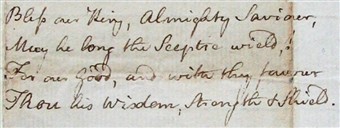 Bless our King, Almighty Saviour,
May he long the Sceptre wield,!
For our good, and with thy favour
Thou his Wisdom, Strength & Shield.